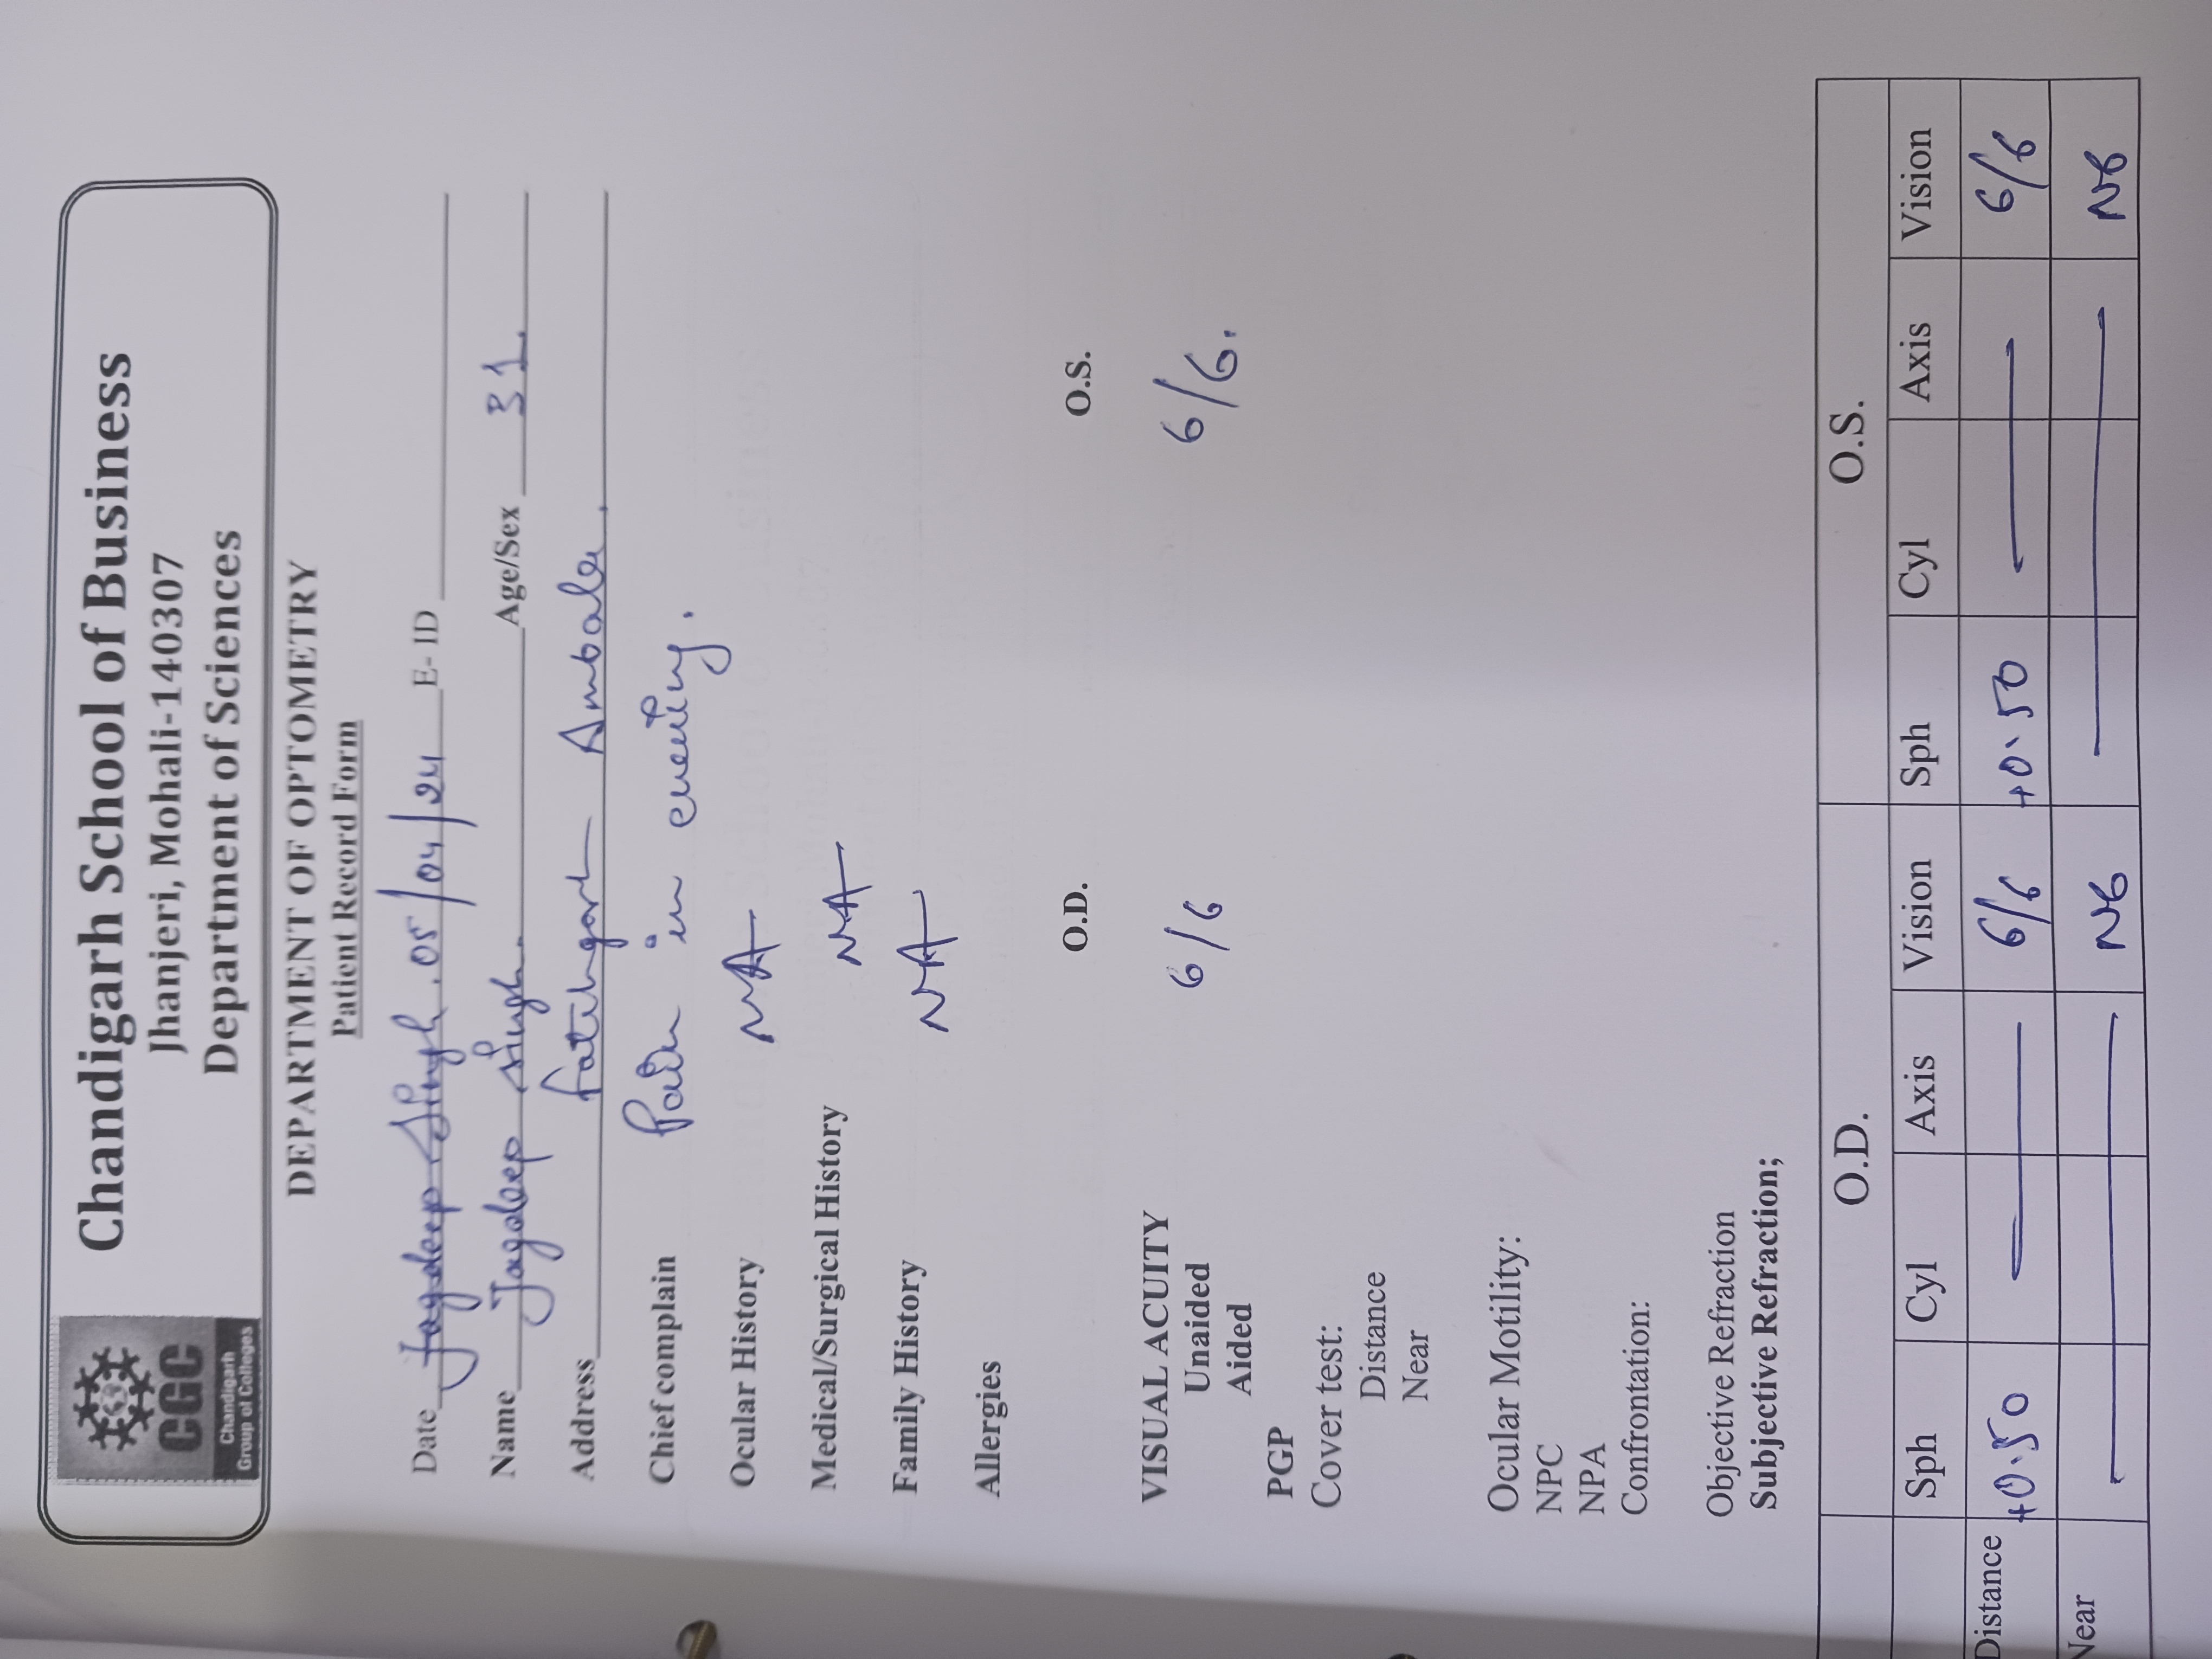 CGC
Chandigarh
Group of Colleges
Chandigarh School of Business
Jhanjeri, Mohali-140307
Department of Sciences
DEPARTMENT OF OPTOMETRY
Patient Record Form
Date Jagdeep Singh. 05/04/24 E- ID
Name Jagdeep Singh. Age/Sex 31
Address Fatehgarh Ambala.
Chief complain Pain in evening.
Ocular History NA
Medical/Surgical History NA
Family History NA
Allergies
O.D. O.S.
VISUAL ACUITY
Unaided 6/6 6/6.
Aided
PGP
Cover test:
Distance
Near
Ocular Motility:
NPC
NPA
Confrontation:
Objective Refraction
Subjective Refraction;
O.D. O.S.
Sph Cyl Axis Vision Sph Cyl Axis Vision
Distance +0.50 — 6/6 +0.50 — 6/6
Near — N6 — N6